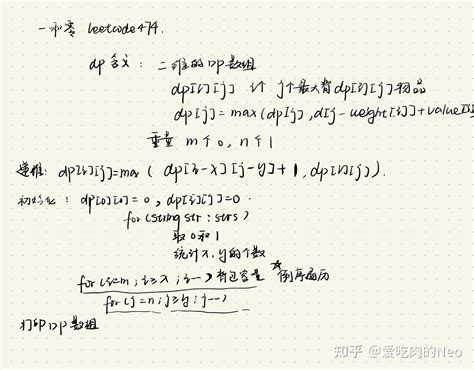 一和零 leetcode474.
dp含义: 二维的DP数组
dp[i][j] i个 j个最大背dp[i][j]物品
dp[j] = max(dp[j], d[j-weight[i]]+value[i]
重量 m个0, n个1
递推: dp[i][j]=max( dp[i-x][j-y]+1, dp[i][j]).
初始化: dp[0][0]=0, dp[i][j]=0.
for(string str : strs)
取0和1
统计x,y的个数
for(i=m; i>=x; i--) 背包容量 倒序遍历
for(j=n; j>=y; j--)
打印DP数组
知乎 @爱吃肉的Neo